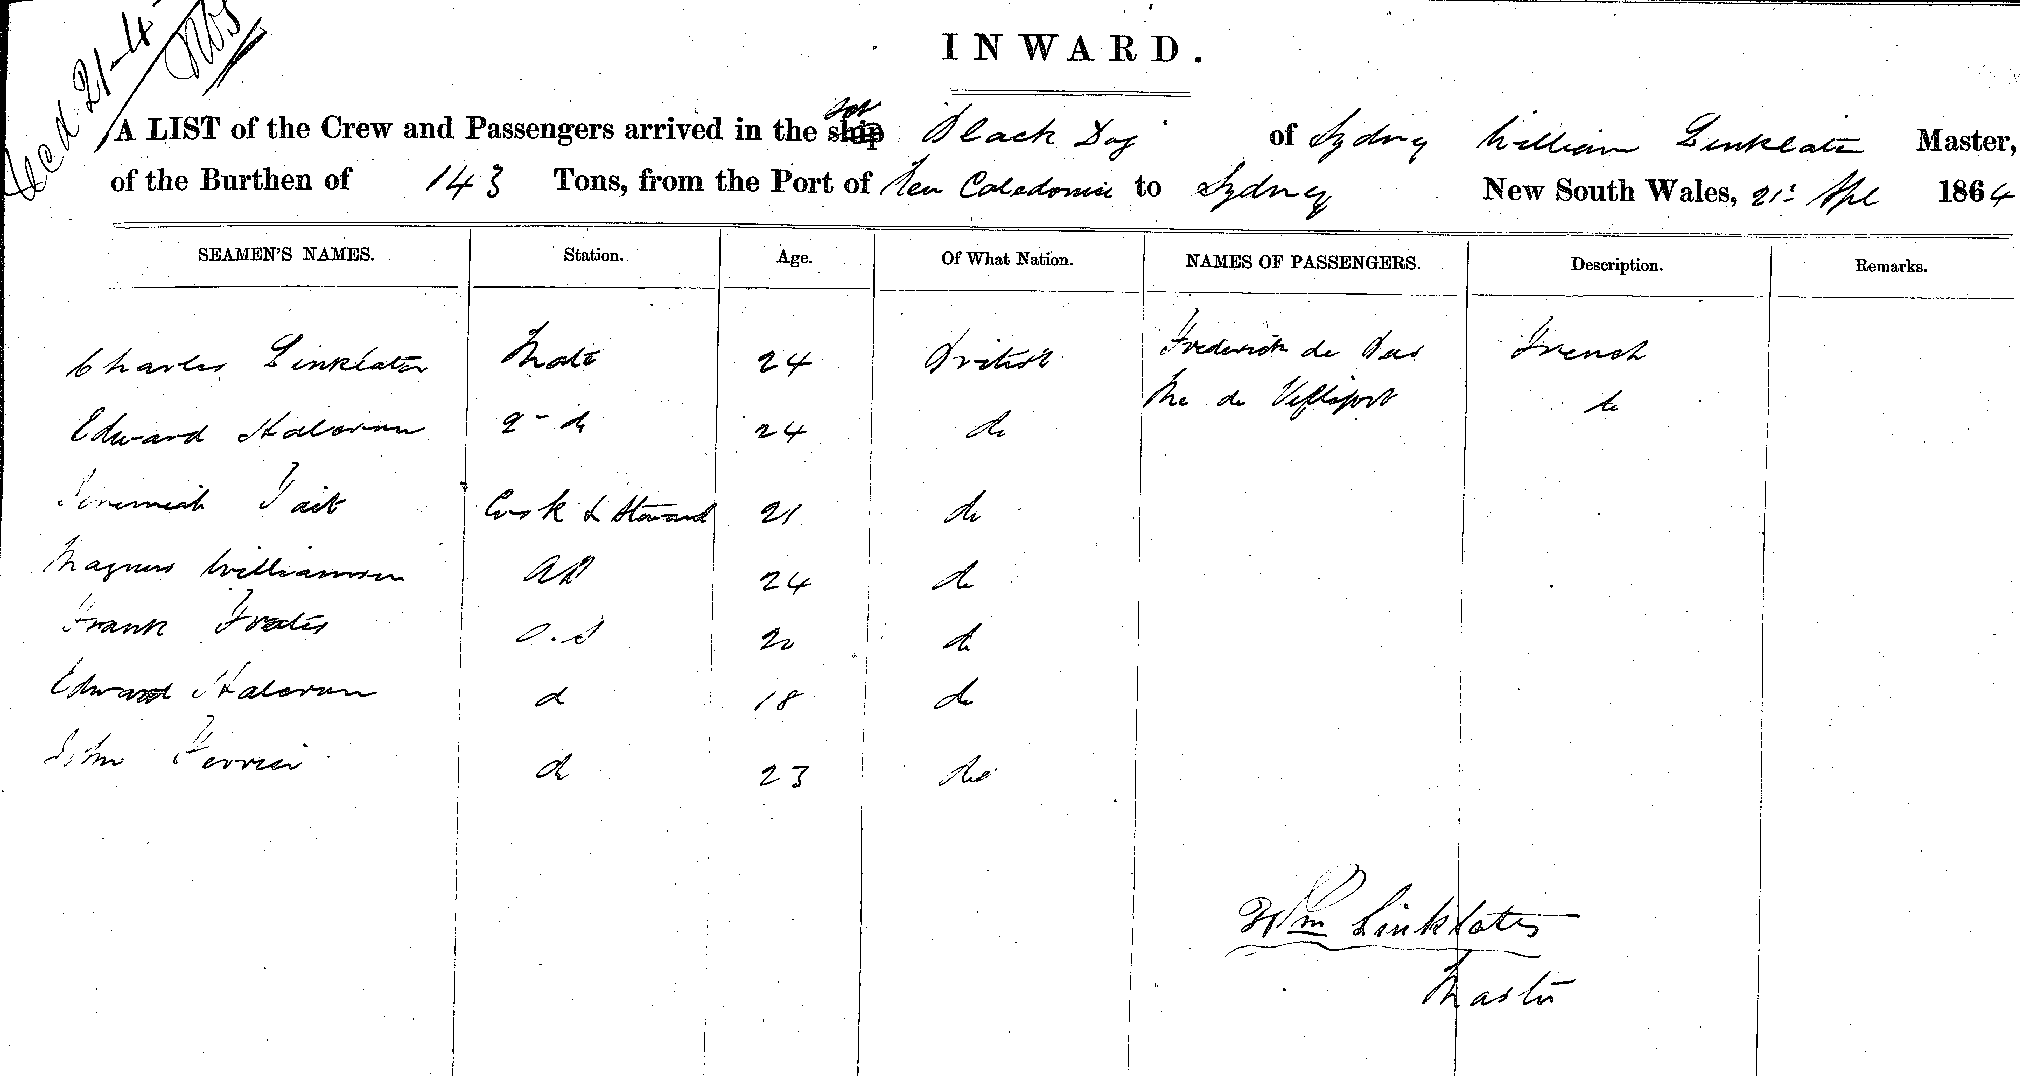 Rec'd 21-4
INWARD.
A LIST of the Crew and Passengers arrived in the ship Black Dog of Sydney William Linklater Master,
of the Burthen of 143 Tons, from the Port of New Caledonia to Sydney New South Wales, 21st Apl 1864
SEAMEN'S NAMES. Station. Age. Of What Nation. NAMES OF PASSENGERS. Description. Remarks.
Charles Linklater Mate 24 British Frederick de French
Mr de do
Edward Halcrow 2nd do 24 do
Jeremiah Tait Cook & Steward 21 do
Magnus Williamson AB 24 do
Frank O.S 20 do
Edward Halcrow do 18 do
John Ferrier do 23 do
Wm Linklater
Master